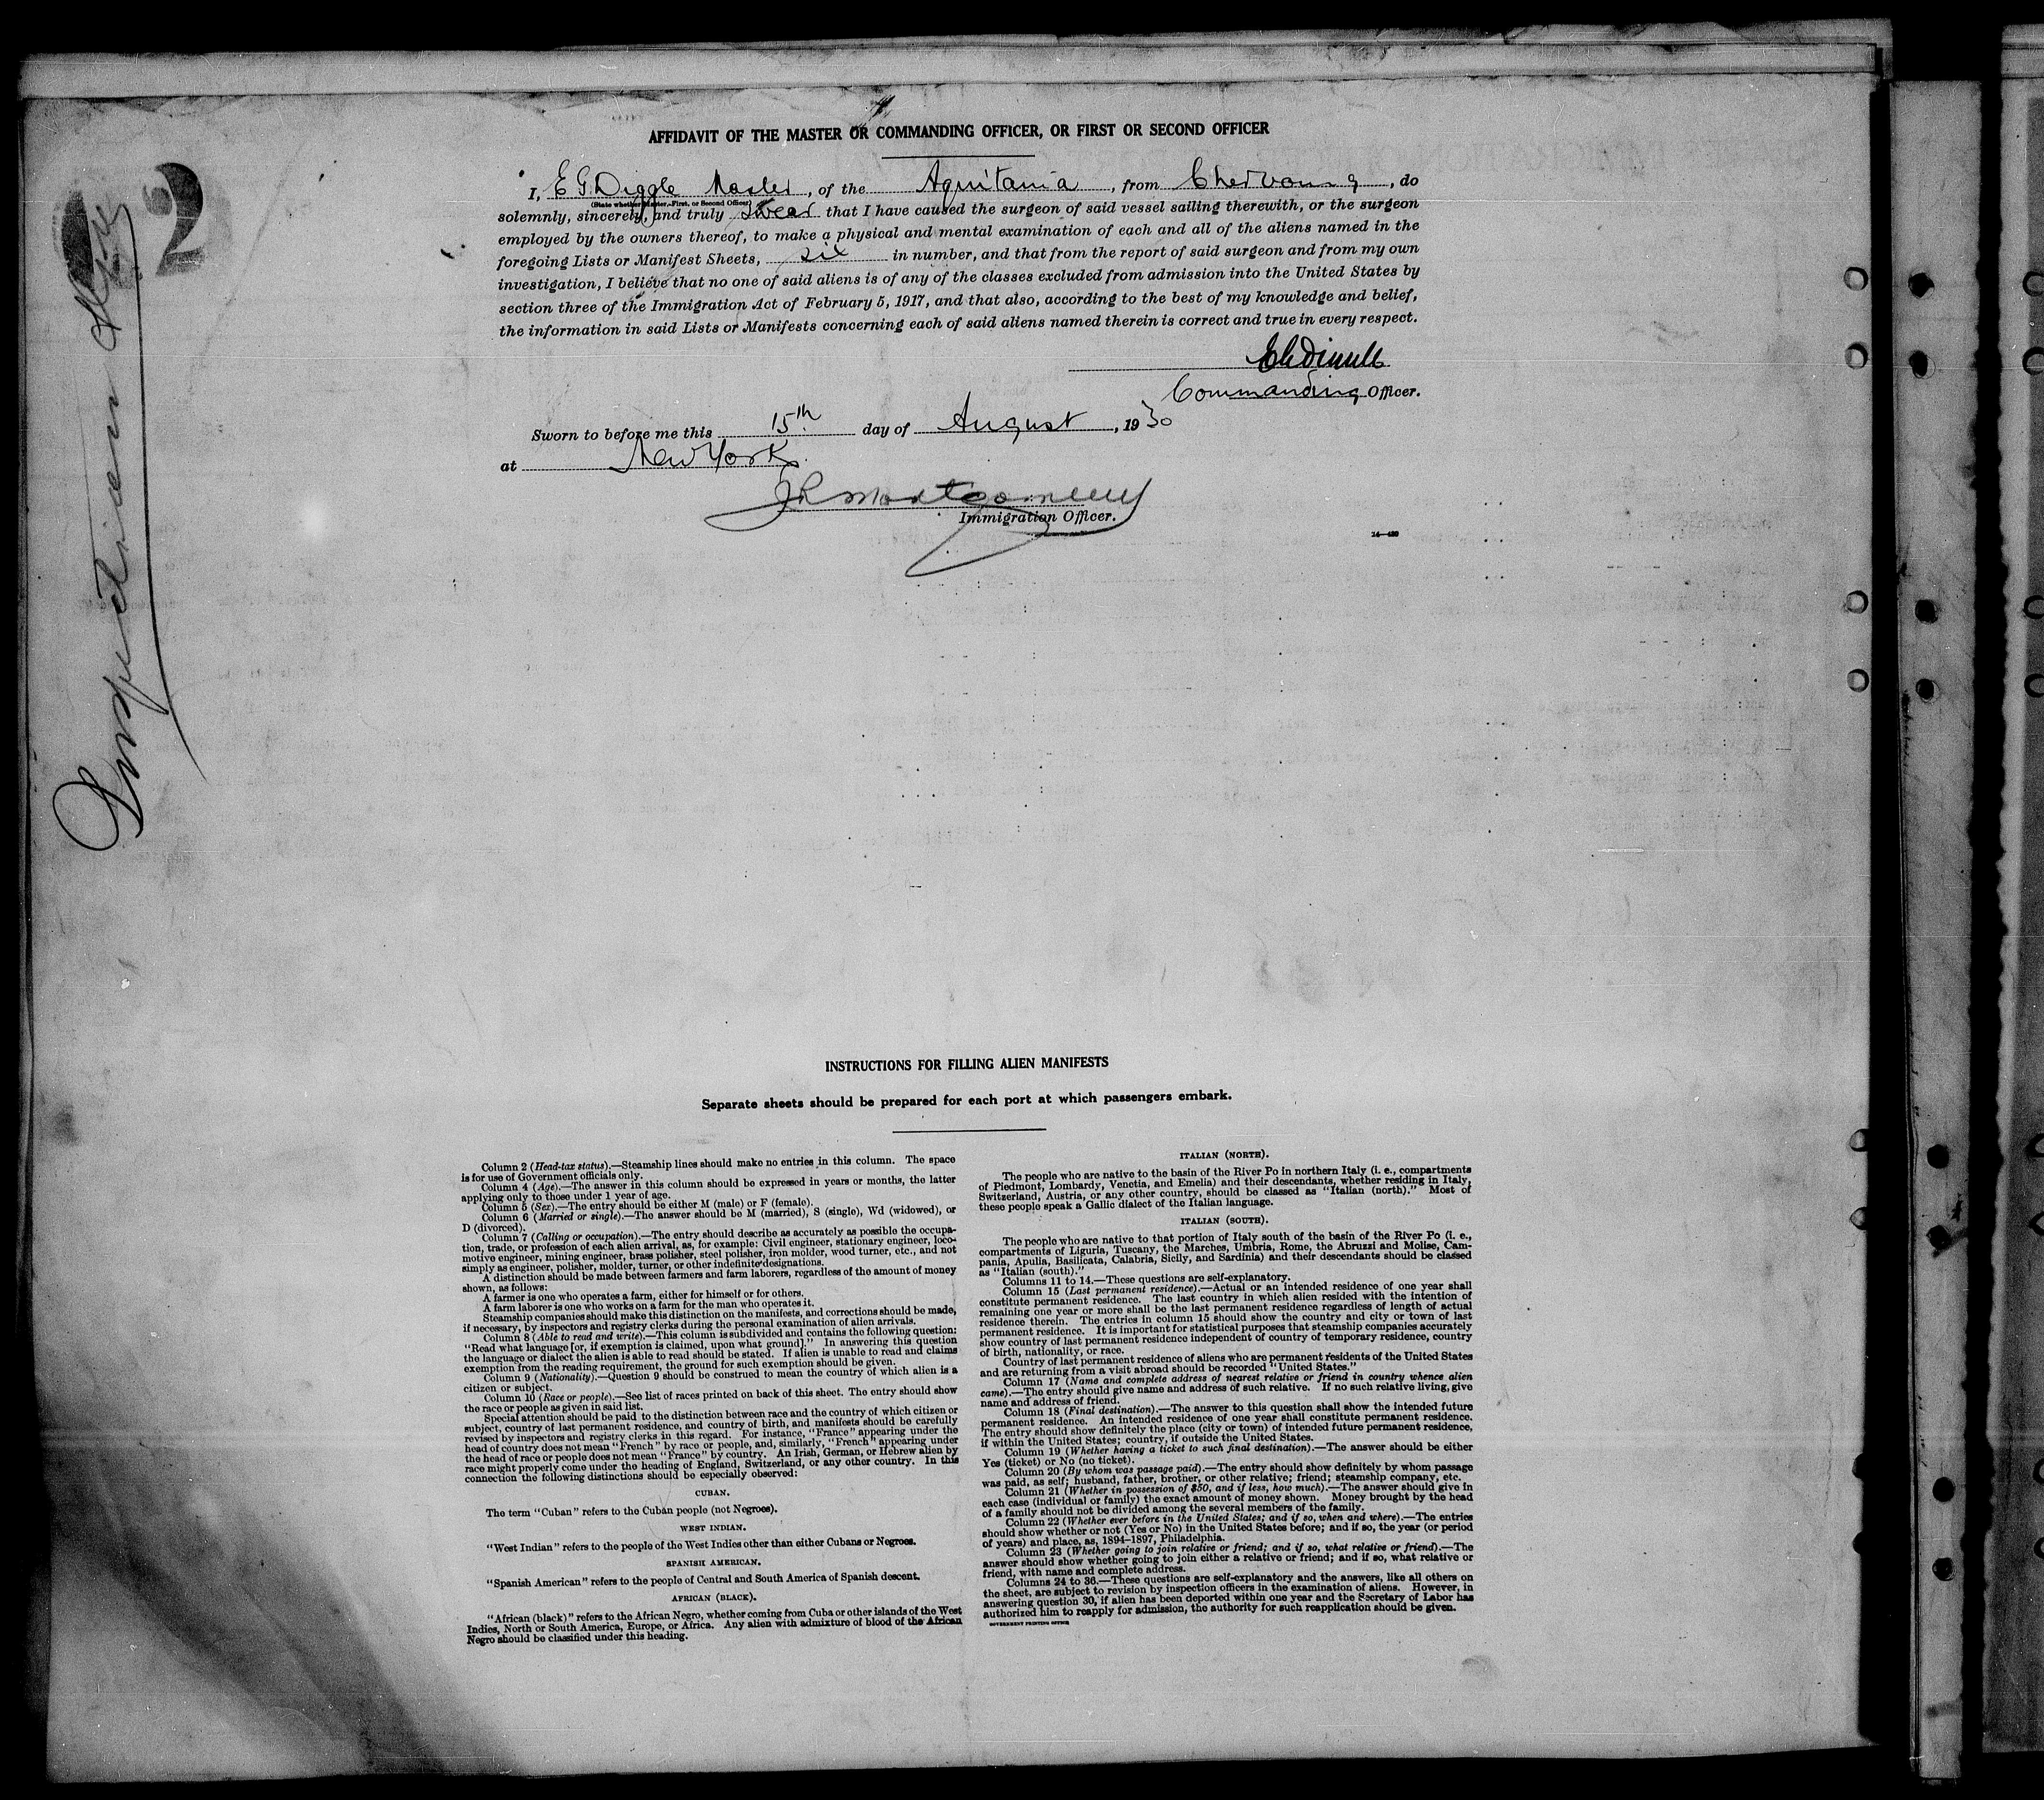 AFFIDAVIT OF THE MASTER OR COMMANDING OFFICER, OR FIRST OR SECOND OFFICER
I, E G Diggle Master, of the Aquitania, from Cherbourg, do
(State whether Master, First, or Second Officer)
solemnly, sincerely, and truly swear that I have caused the surgeon of said vessel sailing therewith, or the surgeon
employed by the owners thereof, to make a physical and mental examination of each and all of the aliens named in the
foregoing Lists or Manifest Sheets, six in number, and that from the report of said surgeon and from my own
investigation, I believe that no one of said aliens is of any of the classes excluded from admission into the United States by
section three of the Immigration Act of February 5, 1917, and that also, according to the best of my knowledge and belief,
the information in said Lists or Manifests concerning each of said aliens named therein is correct and true in every respect.
Commanding Officer.
Sworn to before me this 15th day of August, 1930
at New York
J R Montgomery
Immigration Officer.
14—430
2
INSTRUCTIONS FOR FILLING ALIEN MANIFESTS
Separate sheets should be prepared for each port at which passengers embark.
Column 2 (Head-tax status).—Steamship lines should make no entries in this column. The space
is for use of Government officials only.
Column 4 (Age).—The answer in this column should be expressed in years or months, the latter
applying only to those under 1 year of age.
Column 5 (Sex).—The entry should be either M (male) or F (female).
Column 6 (Married or single).—The answer should be M (married), S (single), Wd (widowed), or
D (divorced).
Column 7 (Calling or occupation).—The entry should describe as accurately as possible the occupa-
tion, trade, or profession of each alien arrival, as, for example: Civil engineer, stationary engineer, loco-
motive engineer, mining engineer, brass polisher, steel polisher, iron molder, wood turner, etc., and not
simply as engineer, polisher, molder, turner, or other indefinite designations.
A distinction should be made between farmers and farm laborers, regardless of the amount of money
shown, as follows:
A farmer is one who operates a farm, either for himself or for others.
A farm laborer is one who works on a farm for the man who operates it.
Steamship companies should make this distinction on the manifests, and corrections should be made,
if necessary, by inspectors and registry clerks during the personal examination of alien arrivals.
Column 8 (Able to read and write).—This column is subdivided and contains the following question:
"Read what language [or, if exemption is claimed, upon what ground]." In answering this question
the language or dialect the alien is able to read should be stated. If alien is unable to read and claims
exemption from the reading requirement, the ground for such exemption should be given.
Column 9 (Nationality).—Question 9 should be construed to mean the country of which alien is a
citizen or subject.
Column 10 (Race or people).—See list of races printed on back of this sheet. The entry should show
the race or people as given in said list.
Special attention should be paid to the distinction between race and the country of which citizen or
subject, country of last permanent residence, and country of birth, and manifests should be carefully
revised by inspectors and registry clerks in this regard. For instance, "France" appearing under the
head of country does not mean "French" by race or people, and, similarly, "French" appearing under
the head of race or people does not mean "France" by country. An Irish, German, or Hebrew alien by
race might properly come under the heading of England, Switzerland, or any other country. In this
connection the following distinctions should be especially observed:
CUBAN.
The term "Cuban" refers to the Cuban people (not Negroes).
WEST INDIAN.
"West Indian" refers to the people of the West Indies other than either Cubans or Negroes.
SPANISH AMERICAN.
"Spanish American" refers to the people of Central and South America of Spanish descent.
AFRICAN (BLACK).
"African (black)" refers to the African Negro, whether coming from Cuba or other islands of the West
Indies, North or South America, Europe, or Africa. Any alien with admixture of blood of the African
Negro should be classified under this heading.
ITALIAN (NORTH).
The people who are native to the basin of the River Po in northern Italy (i. e., compartments
of Piedmont, Lombardy, Venetia, and Emelia) and their descendants, whether residing in Italy,
Switzerland, Austria, or any other country, should be classed as "Italian (north)." Most of
these people speak a Gallic dialect of the Italian language.
ITALIAN (SOUTH).
The people who are native to that portion of Italy south of the basin of the River Po (i. e.,
compartments of Liguria, Tuscany, the Marches, Umbria, Rome, the Abruzzi and Molise, Cam-
pania, Apulia, Basilicata, Calabria, Sicily, and Sardinia) and their descendants should be classed
as "Italian (south)."
Columns 11 to 14.—These questions are self-explanatory.
Column 15 (Last permanent residence).—Actual or an intended residence of one year shall
constitute permanent residence. The last country in which alien resided with the intention of
remaining one year or more shall be the last permanent residence regardless of length of actual
residence therein. The entries in column 15 should show the country and city or town of last
permanent residence. It is important for statistical purposes that steamship companies accurately
show country of last permanent residence independent of country of temporary residence, country
of birth, nationality, or race.
Country of last permanent residence of aliens who are permanent residents of the United States
and are returning from a visit abroad should be recorded "United States."
Column 17 (Name and complete address of nearest relative or friend in country whence alien
came).—The entry should give name and address of such relative. If no such relative living, give
name and address of friend.
Column 18 (Final destination).—The answer to this question shall show the intended future
permanent residence. An intended residence of one year shall constitute permanent residence.
The entry should show definitely the place (city or town) of intended future permanent residence,
if within the United States; country, if outside the United States.
Column 19 (Whether having a ticket to such final destination).—The answer should be either
Yes (ticket) or No (no ticket).
Column 20 (By whom was passage paid).—The entry should show definitely by whom passage
was paid, as self; husband, father, brother, or other relative; friend; steamship company, etc.
Column 21 (Whether in possession of $50, and if less, how much).—The answer should give in
each case (individual or family) the exact amount of money shown. Money brought by the head
of a family should not be divided among the several members of the family.
Column 22 (Whether ever before in the United States; and if so, when and where).—The entries
should show whether or not (Yes or No) in the United States before; and if so, the year (or period
of years) and place, as, 1894–1897, Philadelphia.
Column 23 (Whether going to join relative or friend; and if so, what relative or friend).—The
answer should show whether going to join either a relative or friend; and if so, what relative or
friend, with name and complete address.
Columns 24 to 36.—These questions are self-explanatory and the answers, like all others on
the sheet, are subject to revision by inspection officers in the examination of aliens. However, in
answering question 30, if alien has been deported within one year and the Secretary of Labor has
authorized him to reapply for admission, the authority for such reapplication should be given.
GOVERNMENT PRINTING OFFICE